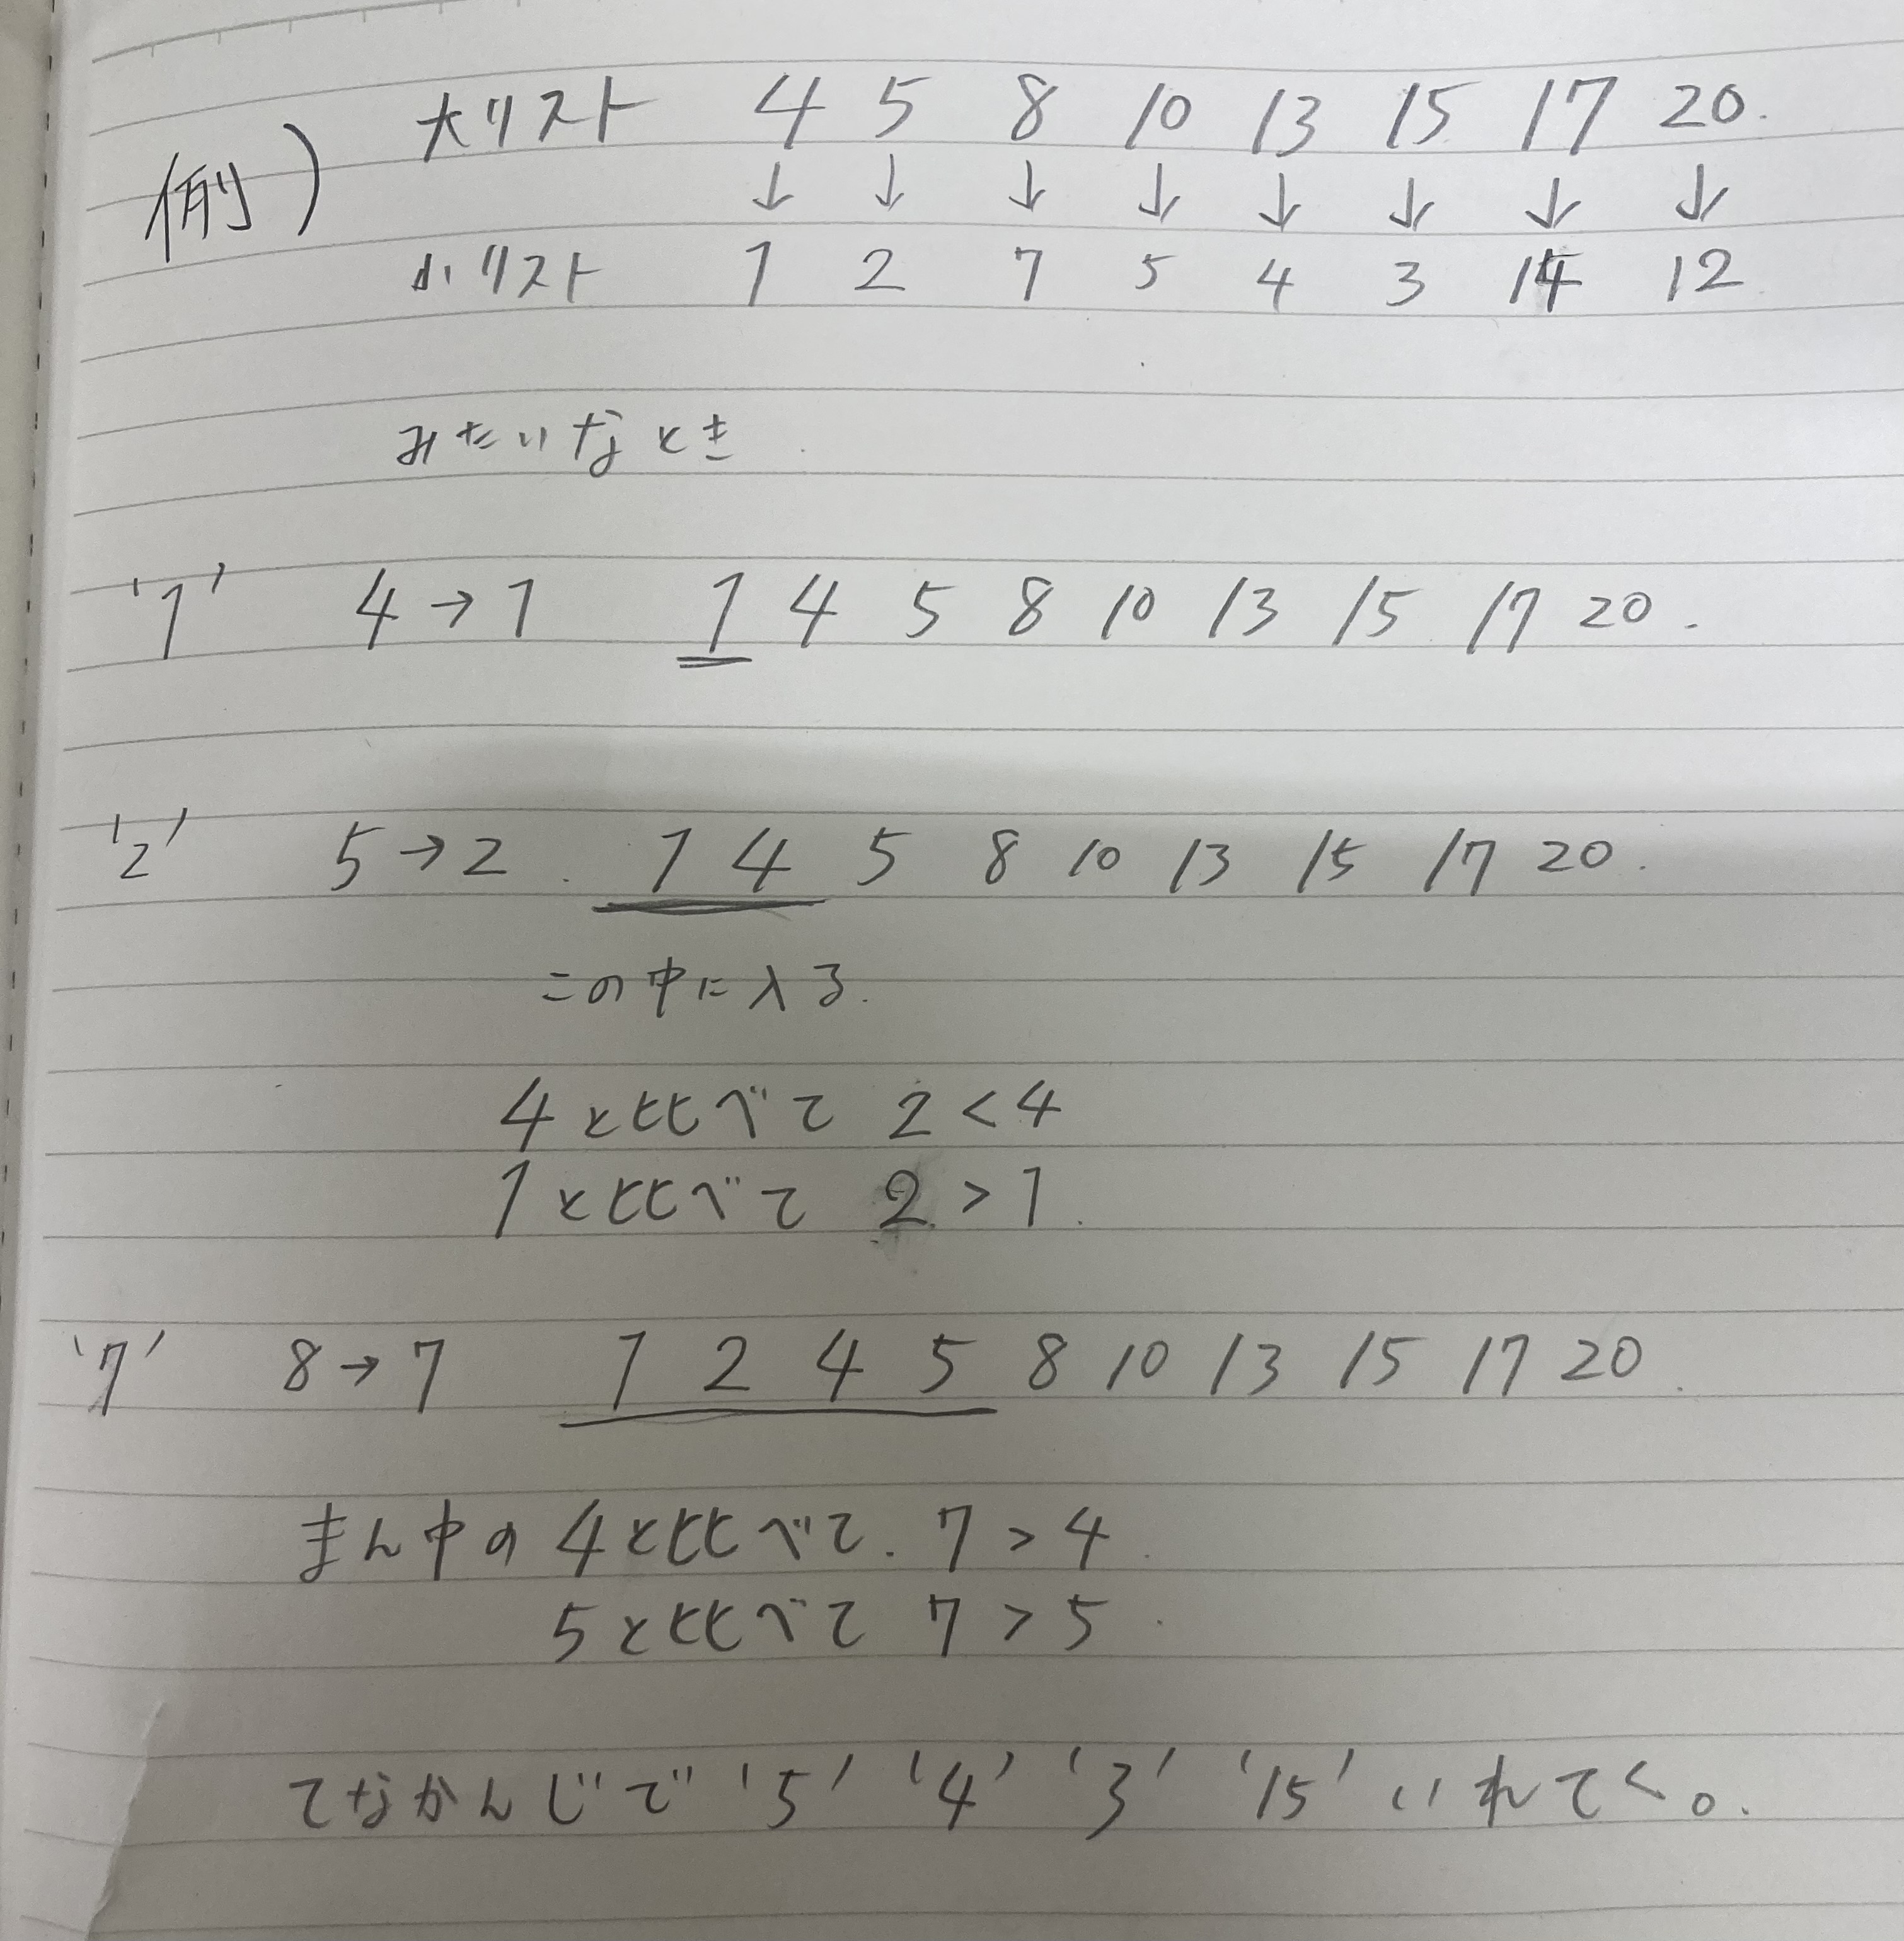 例) 大リスト 4 5 8 10 13 15 17 20.
↓ ↓ ↓ ↓ ↓ ↓ ↓ ↓
小リスト 1 2 7 5 4 3 14 12
みたいなとき
'1' 4→1 1 4 5 8 10 13 15 17 20.
'2' 5→2. 1 4 5 8 10 13 15 17 20.
この中に入る.
4と比べて 2<4
1と比べて 2>1.
'7' 8→7 1 2 4 5 8 10 13 15 17 20.
まん中の4と比べて. 7>4.
5と比べて 7>5.
てなかんじで '5' '4' '3' '15' いれてく。